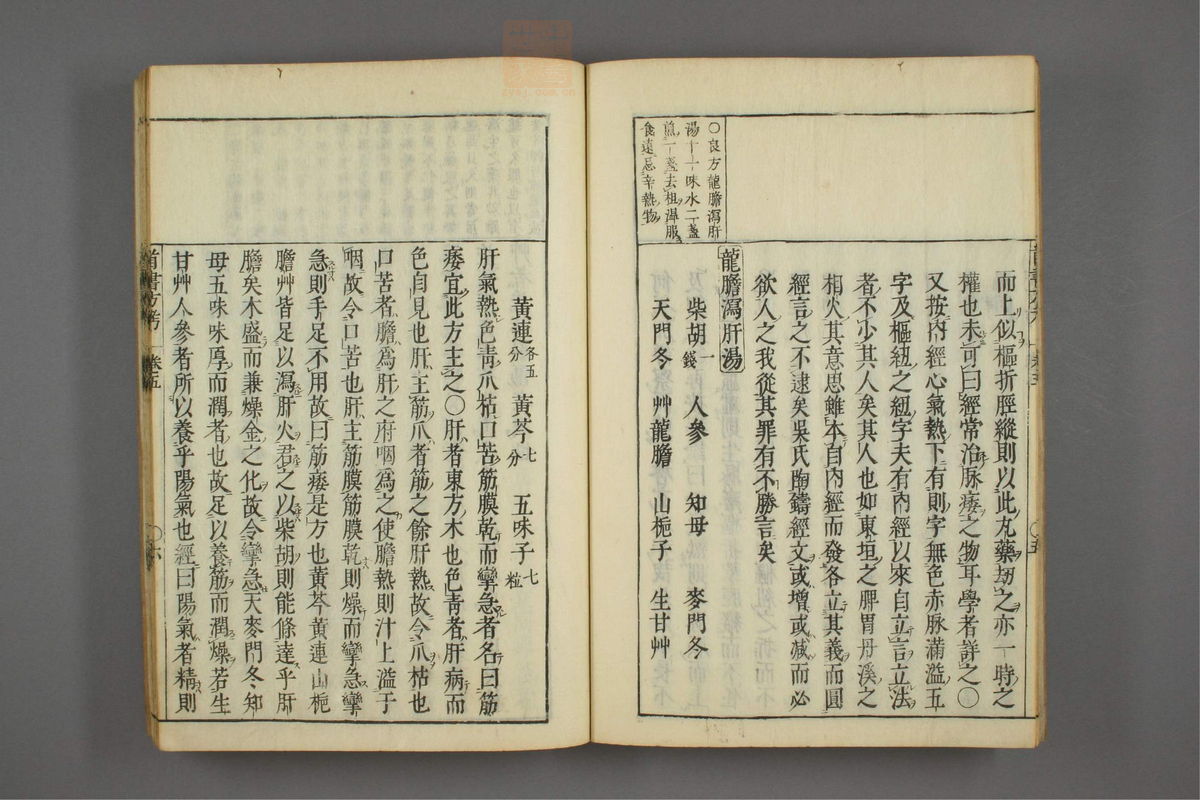 〇良方龍膽瀉肝
湯十一味水二盞
煎一盞去柤溫服
食遠忌辛熱物
而上似樞折脛縱則以此丸藥劫之亦一時之
權也未可曰經常治脉痿之物耳學者詳之〇
又按內經心氣熱下有則字無色赤脉滿溢五
字及樞紐之紐字夫有內經以來自立言立法
者不少其人矣其人也如東垣之脾胃丹溪之
相火其意思雖本自內經而發各立其義而圓
經言之不逮矣吳氏陶鑄經文或增或減而必
欲人之我從其罪有不勝言矣
龍膽瀉肝湯
柴胡一錢 人參 知母 麥門冬
天門冬 艸龍膽 山梔子 生甘艸
黃連各五分 黃芩七分 五味子七粒
肝氣熱色靑爪枯口苦筋膜乾而攣急者名曰筋
痿宜此方主之〇肝者東方木也色靑者肝病而
色自見也肝主筋爪者筋之餘肝熱故令爪枯也
口苦者膽爲肝之府咽爲之使膽熱則汁上溢于
咽故令口苦也肝主筋膜筋膜乾則燥而攣急攣
急則手足不用故曰筋痿是方也黃芩黃連山梔
膽艸皆足以瀉肝火君之以柴胡則能條達乎肝
膽矣木盛而兼燥金之化故令攣急天麥門冬知
母五味味厚而潤者也故足以養筋而潤燥若生
甘艸人參者所以養乎陽氣也經曰陽氣者精則
卷五
〇六